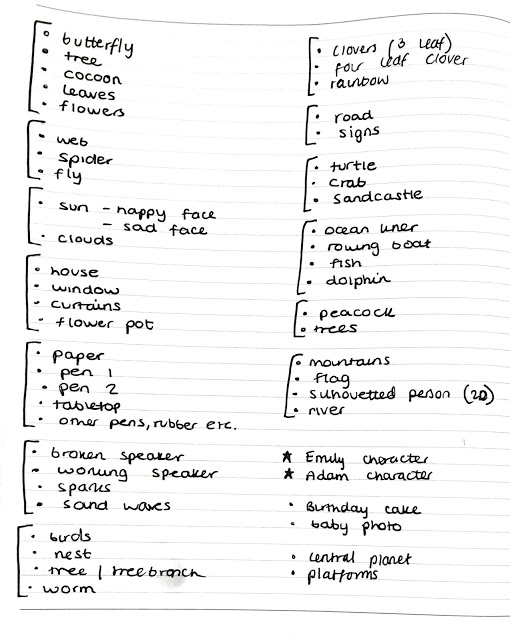 • butterfly
• tree
• cocoon
• leaves
• flowers
• web
• spider
• fly
• sun - happy face
- sad face
• clouds
• house
• window
• curtains
• flower pot
• paper
• pen 1
• pen 2
• tabletop
• other pens, rubber etc.
• broken speaker
• working speaker
• sparks
• sound waves
• birds
• nest
• tree / treebranch
• worm
• clovers (3 leaf)
• four leaf clover
• rainbow
• road
• signs
• turtle
• crab
• sandcastle
• ocean liner
• rowing boat
• fish
• dolphin
• peacock
• trees
• mountains
• flag
• silhouetted person (2D)
• river
★ Emily character
★ Adam character
• Birthday cake
• baby photo
• central planet
• platforms